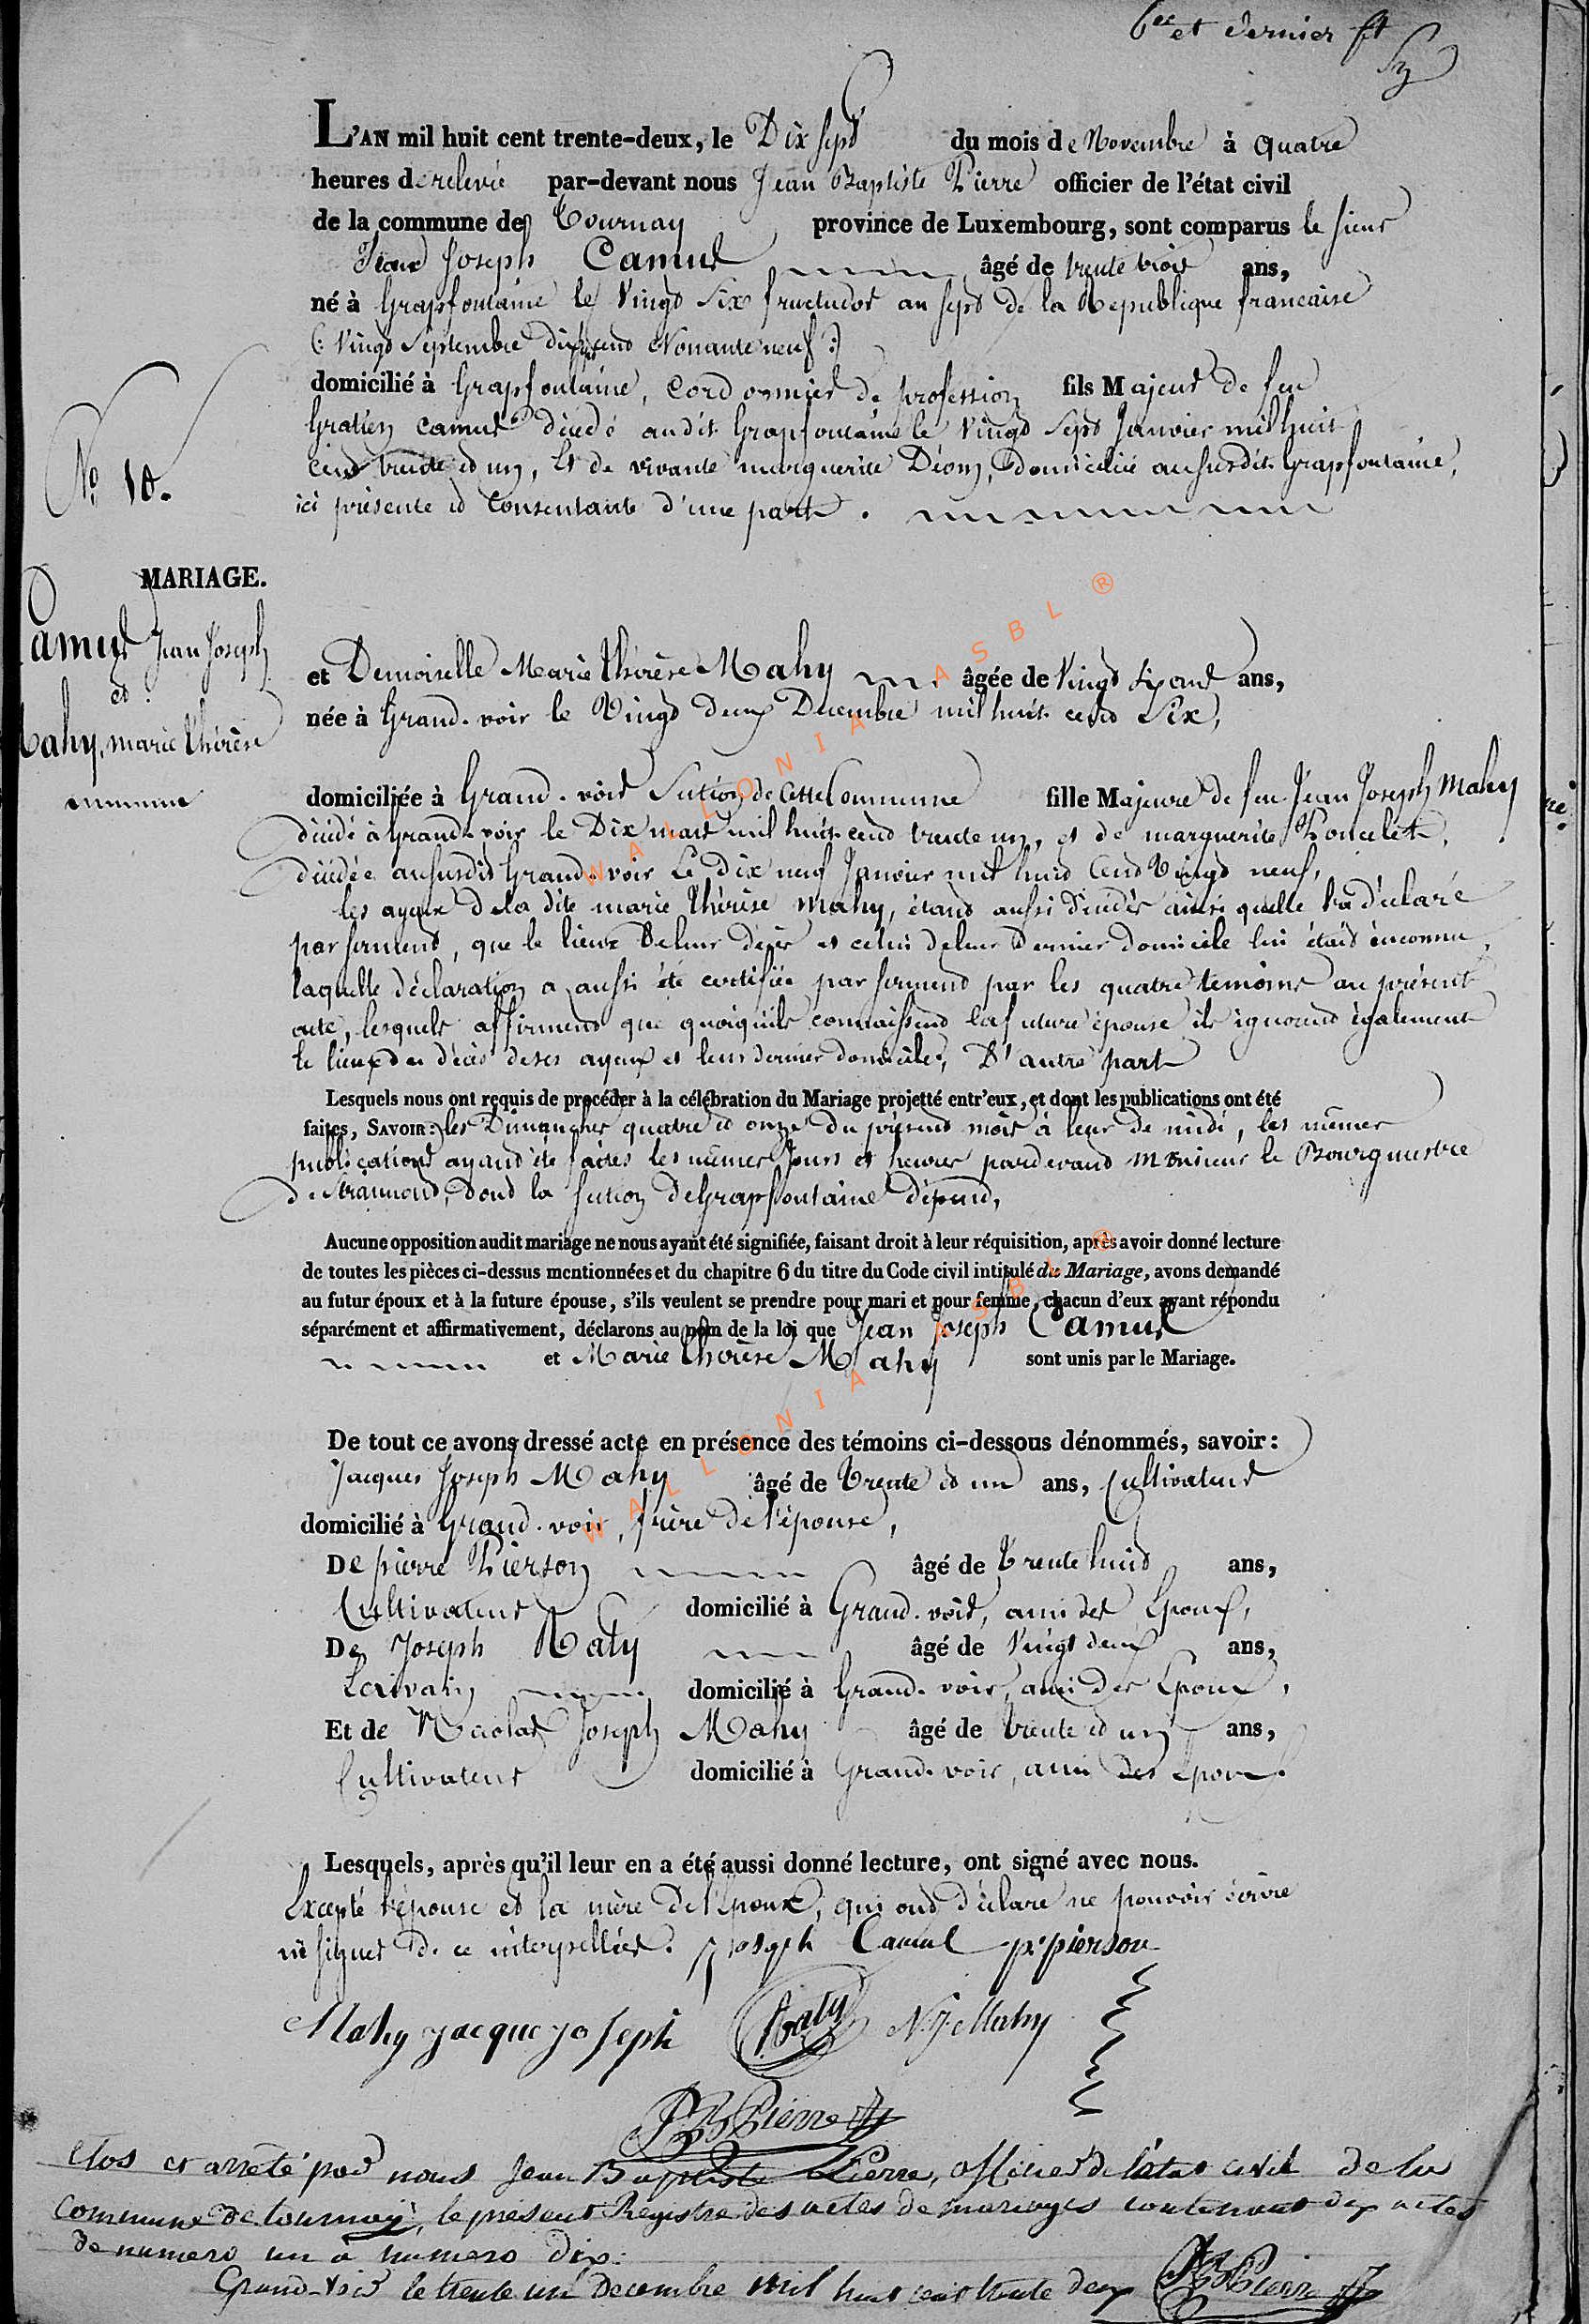 6ee et dernier ft
L'AN mil huit cent trente-deux, le Dix sept du mois de Novembre à quatre
heures de relevée par-devant nous Jean Baptiste Pierre officier de l'état civil
de la commune de Tournay province de Luxembourg, sont comparus le sieur
Jean Joseph Camus âgé de trente trois ans,
né à Grapfontaine le Vingt Six fructudor an sept de la Republique francaise
(: Vingt Septembre dix sept cent Nonante neuf :)
domicilié à Grapfontaine, Cordonnier de profession fils Majeur de feu
Gratien Camus décédé audit Grapfontaine le Vingt Sept Janvier mil huit
cent trente et un, Et de vivante marguerite Déom, domiciliée au susdit Grapfontaine,
ici présente et Consentante d'une part.
No 10.
MARIAGE.
Camus Jean Joseph
et
Mahy, marie thérèse
et Demoiselle Marie thérèse Mahy âgée de Vingt six ans ans,
née à Grand-voir le Vingt deux Decembre mil huit cent Six,
domiciliée à Grand-voir Section de Cette Commune fille Majeure de feu Jean Joseph Mahy
décédé à Grand-voir le Dix mars mil huit cend trente un, et de marguerite Poncelet,
décédée au susdit Grand-voir Le dix neuf Janvier mil huit Cent Vingt neuf,
les ayeux de la dite marie thérèse Mahy, étant aussi décédés ainsi quelle l'a déclaré
par serment, que le lieux de leur décès et celui de leur Dernier domicile lui était inconnu,
laquelle déclaration a aussi été certifiée par serment par les quatre temoins au présent
acte, lesquels affirment que quoiqu'ils connaissent la future épouse ils ignorent également
le lieux du décès de ses ayeux et leur dernier domicile, D'autre part
Lesquels nous ont requis de procéder à la célébration du Mariage projetté entr'eux, et dont les publications ont été
faites, SAVOIR: les Dimanches quatre et onze du présent mois à leur de midi, les mêmes
publications ayant été faites les mêmes Jours et heures pardevant Monsieur le Bourgmestre
de Straimont, dont la section de Grapfontaine dépend,
Aucune opposition audit mariage ne nous ayant été signifiée, faisant droit à leur réquisition, après avoir donné lecture
de toutes les pièces ci-dessus mentionnées et du chapitre 6 du titre du Code civil intitulé du Mariage, avons demandé
au futur époux et à la future épouse, s'ils veulent se prendre pour mari et pour femme, chacun d'eux ayant répondu
séparément et affirmativement, déclarons au nom de la loi que Jean Joseph Camus
et Marie thérèse Mahy sont unis par le Mariage.
De tout ce avons dressé acte en présence des témoins ci-dessous dénommés, savoir:
Jacques Joseph Mahy âgé de trente et un ans, Cultivateur
domicilié à Grand-voir, frère de l'épouse,
De pierre Pierson âgé de Trente huit ans,
Cultivateur domicilié à Grand-voir, ami des Epoux,
De Joseph Baty âgé de Vingt deux ans,
Ecrivain domicilié à Grand-voir, ami des Epoux,
Et de Nicolas Joseph Mahy âgé de trente et un ans,
Cultivateur domicilié à Grand-voir, ami des Epoux.
Lesquels, après qu'il leur en a été aussi donné lecture, ont signé avec nous.
Excepté l'épouse et la mère de l'Epoux, qui ont déclaré ne pouvoir écrire
ni signer de ce interpellées. Joseph Camul p. pierson
Mahy jacque joseph Baty N. J. Mahy
JB Pierre
Clos et arreté par nous Jean Baptiste Pierre, officier de l'état civil de la
Commune de tournay, le présent Registre des actes de mariages contenant dix actes
de numero un à numero dix.
Grand-voir le trente un Decembre mil huit cent trente deux JB Pierre
WALLONIA ASBL ®
WALLONIA ASBL ®